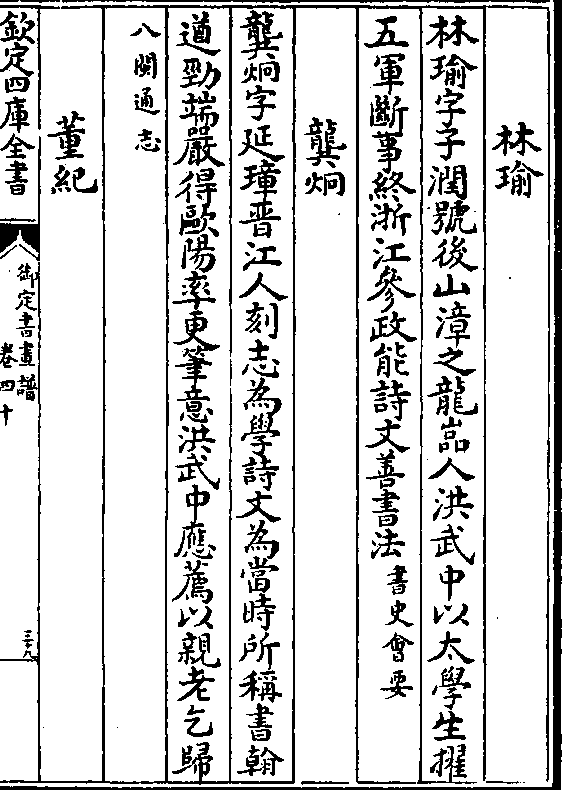 林瑜
林瑜字子潤號後山漳之龍嵓人洪武中以太學生擢
五軍斷事終浙江參政能詩文善書法書史會要
龔炯
龔炯字延璋晉江人刻志為學詩文為當時所稱書翰
遒勁端嚴得歐陽率更筆意洪武中應薦以親老乞歸
八閩通志
董紀
欽定四庫全書
御定書畫譜
卷四十